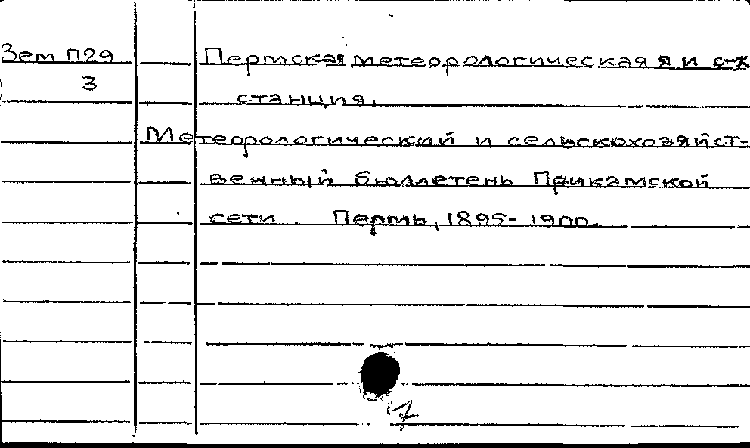 Зем П29
3
Пермская метеорологическая и с-х
станция.
Метеорологический и сельскохозяйст-
венный бюллетень Прикамской
сети. Пермь, 1895-1900.